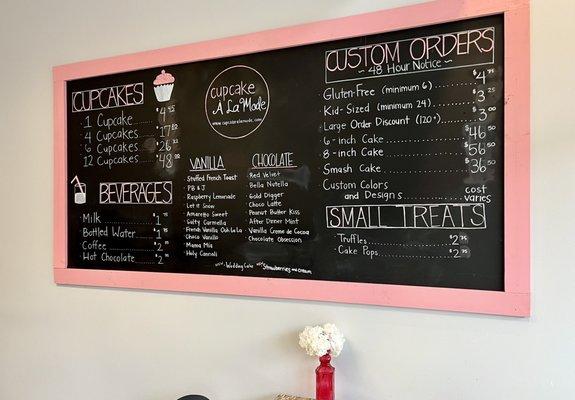 CUPCAKES
1 Cupcake 4.45
4 Cupcakes 17.02
6 Cupcakes 26
12 Cupcakes 48
BEVERAGES
Milk $1
Bottled Water $1
Coffee $2
Hot Chocolate $2
cupcake
À La MODE
www.cupcakealamode.com
VANILLA
Stuffed French Toast
PB & J
Raspberry Lemonade
Let it Snow
Amaretto Sweet
Salty Carmella
French Vanilla Ooh La La
Choco Vanillo
Mama Mia
Holy Cannoli
CHOCOLATE
Red Velvet
Bella Nutella
Gold Digger
Choco Latte
Peanut Butter Kiss
After Dinner Mint
Vanilla Creme de Cocoa
Chocolate Obsession
Wedding Cake Strawberries and cream
CUSTOM ORDERS
~ 48 Hour Notice ~
Gluten-Free (minimum 6) $4.75
Kid-Sized (minimum 24) $3.25
Large Order Discount (120+) $3
6-inch Cake $46.50
8-inch Cake $56.50
Smash Cake $36.50
Custom Colors
and Designs cost
varies
SMALL TREATS
Truffles $2.75
Cake Pops $2.75